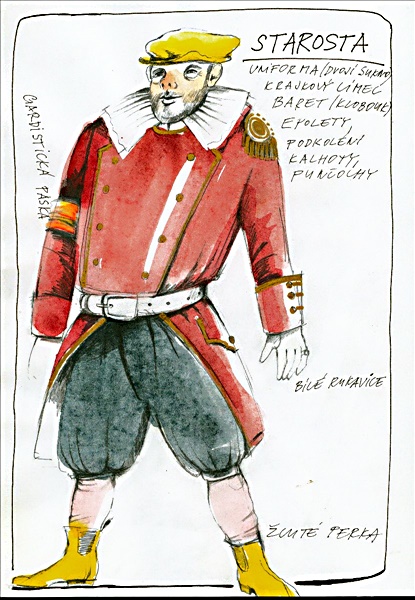 STAROSTA
UNIFORMA (DVOJÍ SUKNO)
KRAJKOVÝ LÍMEC
BARET (KLOBOUK)
EPOLETY
PODKOLENÍ
KALHOTY,
PUNČOCHY
GARDISTICKÁ PÁSKA
BÍLÉ RUKAVICE
ŽLUTÉ PERKA